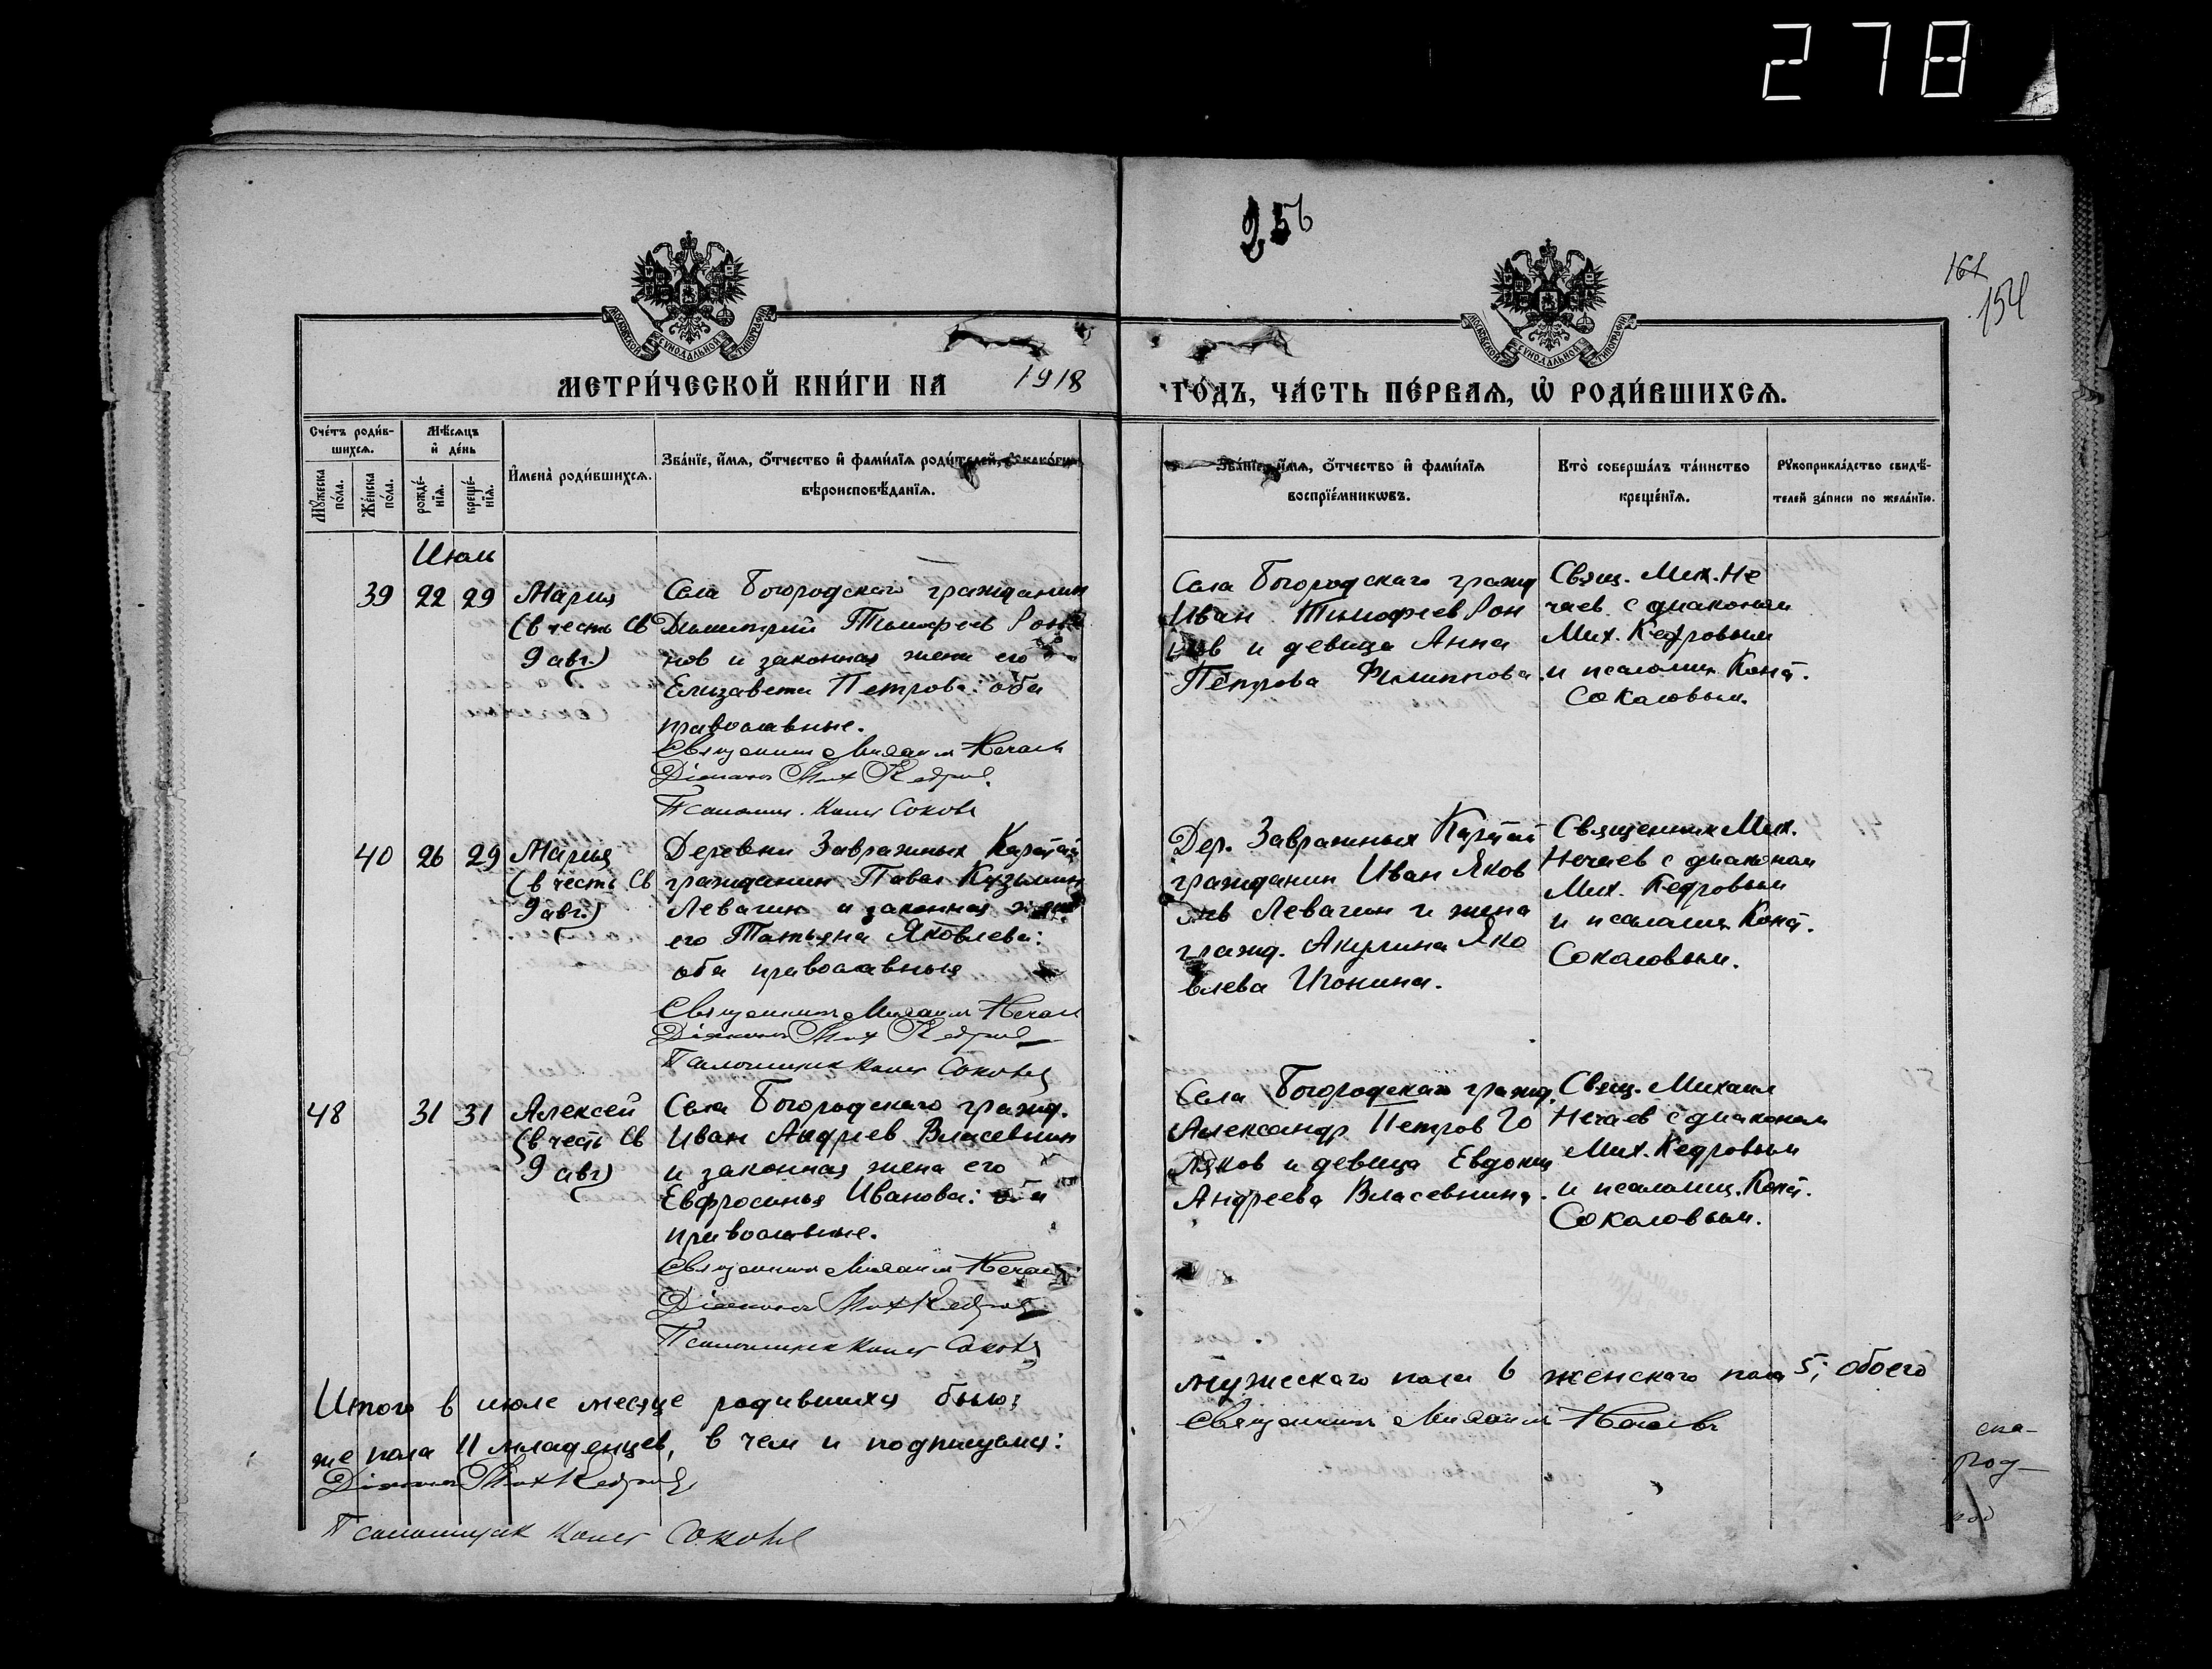 278
256
161
154
МОСКОВСКОЙ СѴНОДАЛЬНОЙ ТИПОГРАФІИ
МОСКОВСКОЙ СѴНОДАЛЬНОЙ ТИПОГРАФІИ
МЕТРИ́ЧЕСКОЙ КНИ́ГИ НА 1918 ГО́ДЪ, ЧА́СТЬ ПЕ́РВАѦ, Ѽ РОДИ́ВШИХСѦ.
Сче́тъ роди́в-
шихсѧ.
Мꙋ́жеска по́ла.
Же́нска по́ла.
Мѣ́сѧцъ
и҆ де́нь
рожде́-
нїѧ.
креще́-
нїѧ.
И҆мена̀ роди́вшихсѧ.
Зва́нїе, и҆́мѧ, ѻ҆́тчество и҆ фами́лїѧ роди́телей, и҆ како́гѡ
вѣроисповѣ́данїѧ.
Зва́нїе, и҆́мѧ, ѻ҆́тчество и҆ фами́лїѧ
воспрїе́мникѡвъ.
Кто̀ соверша́лъ та́инство
креще́нїѧ.
Рꙋкоприкла́дство свидѣ́-
телей за́писи по жела́нїю.
Июль
39 22 29 Мария
(в честь св
9 авг.)
Села Богородского гражданин
Димитрий Тимофеев Рон
нов и законная жена его
Елизавета Петрова: оба
православные.
Священник Михаил Нечаев
Діаконъ Мих Кедров
Псаломщ. Конст Соколов
Села Богородскаго гражд
Иван Тимофеев Рон
нов и девица Анна
Петрова Филиппова.
Свящ. Мих. Не
чаев с диаконом
Мих. Кедровым
и псаломщ. Конст.
Соколовым.
40 26 29 Марья
(в честь св
9 авг.)
Деревни Завражных
гражданин Павел Кузьмин
Левагин и законная жена
его Татьяна Яковлева:
оба православные
Священник Михаил Нечаев
Діаконъ Мих Кедров
Псаломщик Конст Соколов
Дер. Завражных
гражданин Иван Яков
лев Левагин и жена
гражд. Акулина Яко
влева Игонина.
Священник Мих.
Нечаев с диаконом
Мих. Кедровым
и псаломщ. Конст.
Соколовым.
48 31 31 Алексей
(в честь св
9 авг)
Села Богородскаго гражд.
Иван Андреев Власевнин
и законная жена его
Евфросинья Иванова: оба
православные.
Священник Михаил Нечаев
Діаконъ Мих Кедров
Псаломщик Конст Соколов
Села Богородскаго гражд.
Александр Петров Го
ляков и девица Евдокия
Андреева Власевнина.
Свящ. Михаил
Нечаев с диаконом
Мих. Кедровым
и псаломщ. Конст.
Соколовым.
Итого в июле месяце родившихся было: мужескаго пола 6 женскаго пола 5; обоего
же пола 11 младенцев, в чем и подписуемся: Священник Михаил Нечаевъ
Діаконъ Мих Кедров
Псаломщик Конст Соколов